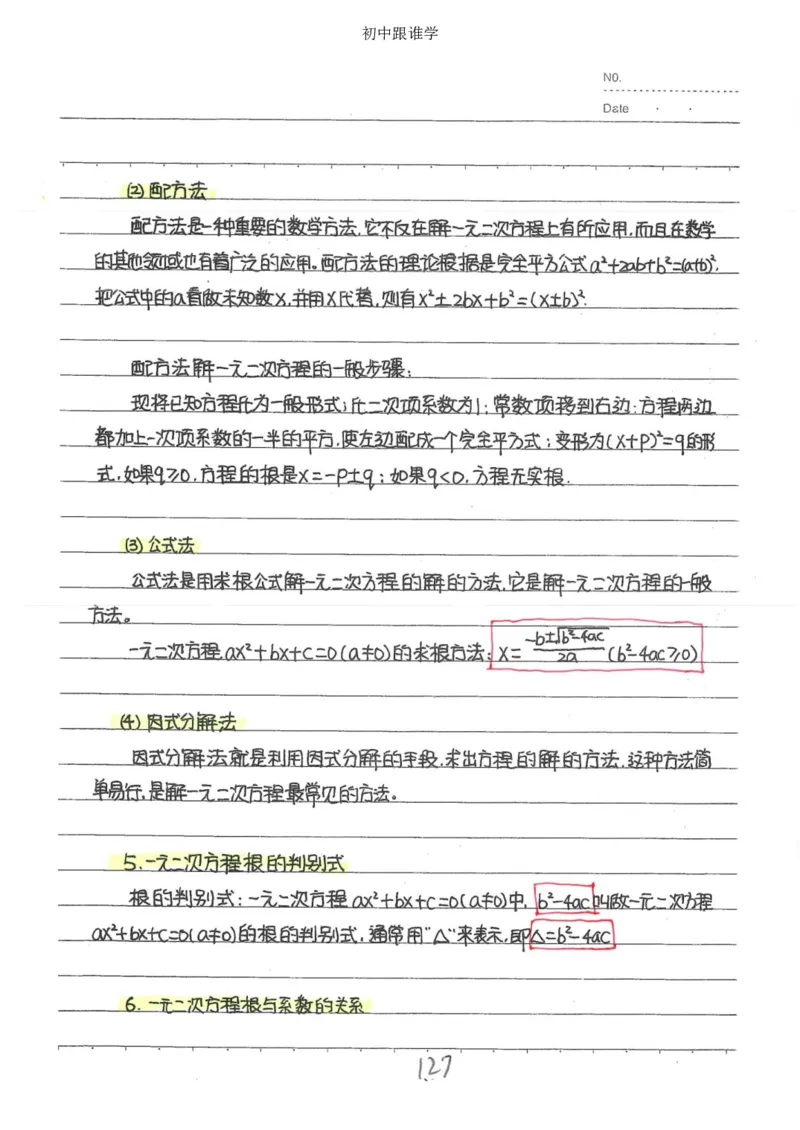 初中跟谁学
NO.
Date · ·
(2) 配方法
配方法是一种重要的数学方法,它不仅在解一元二次方程上有所应用,而且在数学
的其他领域也有着广泛的应用。配方法的理论根据是完全平方公式a²+2ab+b²=(a+b)²,
把公式中的a看做未知数x,并用x代替,则有x²±2bx+b²=(x±b)².
配方法解一元二次方程的一般步骤:
现将已知方程化为一般形式;化二次项系数为1;常数项移到右边;方程两边
都加上一次项系数的一半的平方,使左边配成一个完全平方式;变形为(x+p)²=q的形
式,如果q≥0,方程的根是x=-p±q;如果q<0,方程无实根.
(3) 公式法
公式法是用求根公式解一元二次方程的解的方法,它是解一元二次方程的一般
方法。
一元二次方程ax²+bx+c=0(a≠0)的求根方法:x=(-b±√(b²-4ac))/2a (b²-4ac≥0)
(4) 因式分解法
因式分解法就是利用因式分解的手段,求出方程的解的方法,这种方法简
单易行,是解一元二次方程最常见的方法。
5.一元二次方程根的判别式
根的判别式:一元二次方程ax²+bx+c=0(a≠0)中,b²-4ac叫做一元二次方程
ax²+bx+c=0(a≠0)的根的判别式,通常用"△"来表示,即△=b²-4ac
6.一元二次方程根与系数的关系
127